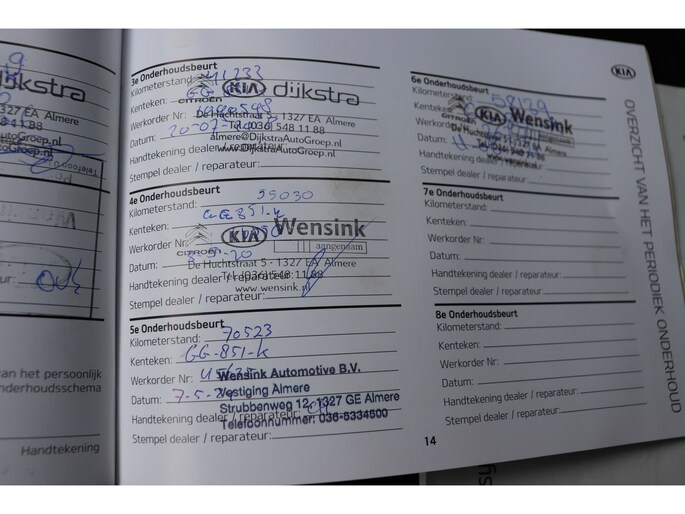 dijkstra
1327 EA Almere
AutoGroep.nl
Telefoon
OVK
van het persoonlijk
nderhoudsschema
Handtekening
3e Onderhoudsbeurt
Kilometerstand: 41233
Kenteken: GG
KIA dijkstra
CITROËN
Werkorder Nr:
De Huchtstraat 5 - 1327 EA Almere
Datum: 20-07-
Tel. (036) 548 11 88
almere@DijkstraAutoGroep.nl
Handtekening dealer / reparateur:
www.DijkstraAutoGroep.nl
Stempel dealer / reparateur:
4e Onderhoudsbeurt
Kilometerstand: 55030
Kenteken: GG 851-k
Werkorder Nr:
KIA Wensink
CITROËN aangenaam
Datum:
De Huchtstraat 5 - 1327 EA Almere
Handtekening dealer / reparateur:
Tel. (036) 548 11 88
Stempel dealer / reparateur:
www.wensink.nl
5e Onderhoudsbeurt
Kilometerstand: 70523
Kenteken: GG-851-k
Werkorder Nr:
Wensink Automotive B.V.
Vestiging Almere
Datum: 7-5-
Strubbenweg 12, 1327 GE Almere
Handtekening dealer / reparateur:
Telefoonnummer: 036-5334500
Stempel dealer / reparateur:
6e Onderhoudsbeurt
Kilometerstand: 58129
Kenteken:
KIA Wensink
CITROËN
Werkorder Nr:
De Huchtstraat 5 - 1327 EA Almere
Datum:
Tel. (036) 548 11 88
Handtekening dealer / reparateur:
www.wensink.nl
Stempel dealer / reparateur:
7e Onderhoudsbeurt
Kilometerstand:
Kenteken:
Werkorder Nr:
Datum:
Handtekening dealer / reparateur:
Stempel dealer / reparateur:
8e Onderhoudsbeurt
Kilometerstand:
Kenteken:
Werkorder Nr:
Datum:
Handtekening dealer / reparateur:
Stempel dealer / reparateur:
14
KIA
OVERZICHT VAN HET PERIODIEK ONDERHOUD